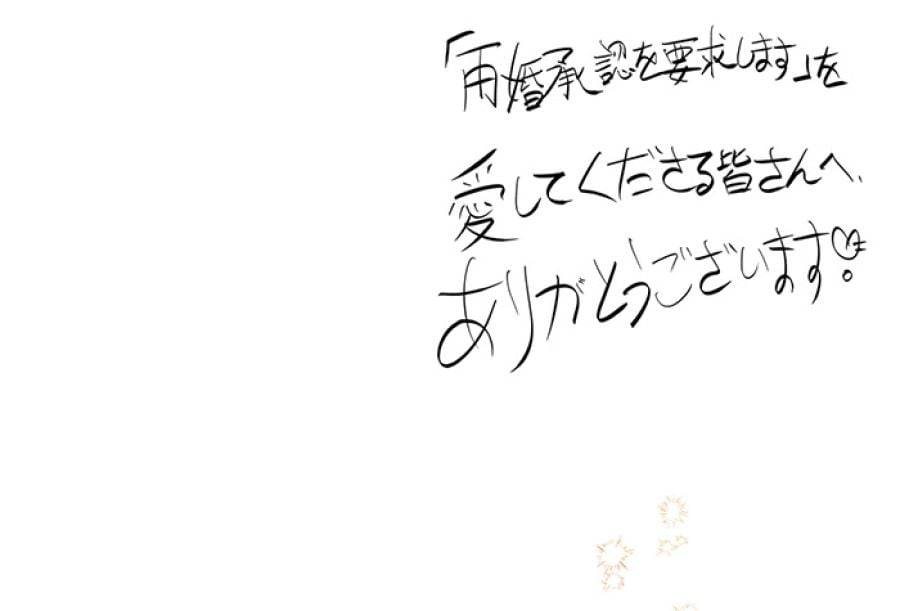 「再婚承認を要求します」を
愛してくださる皆さんへ、
ありがとうございます♡!